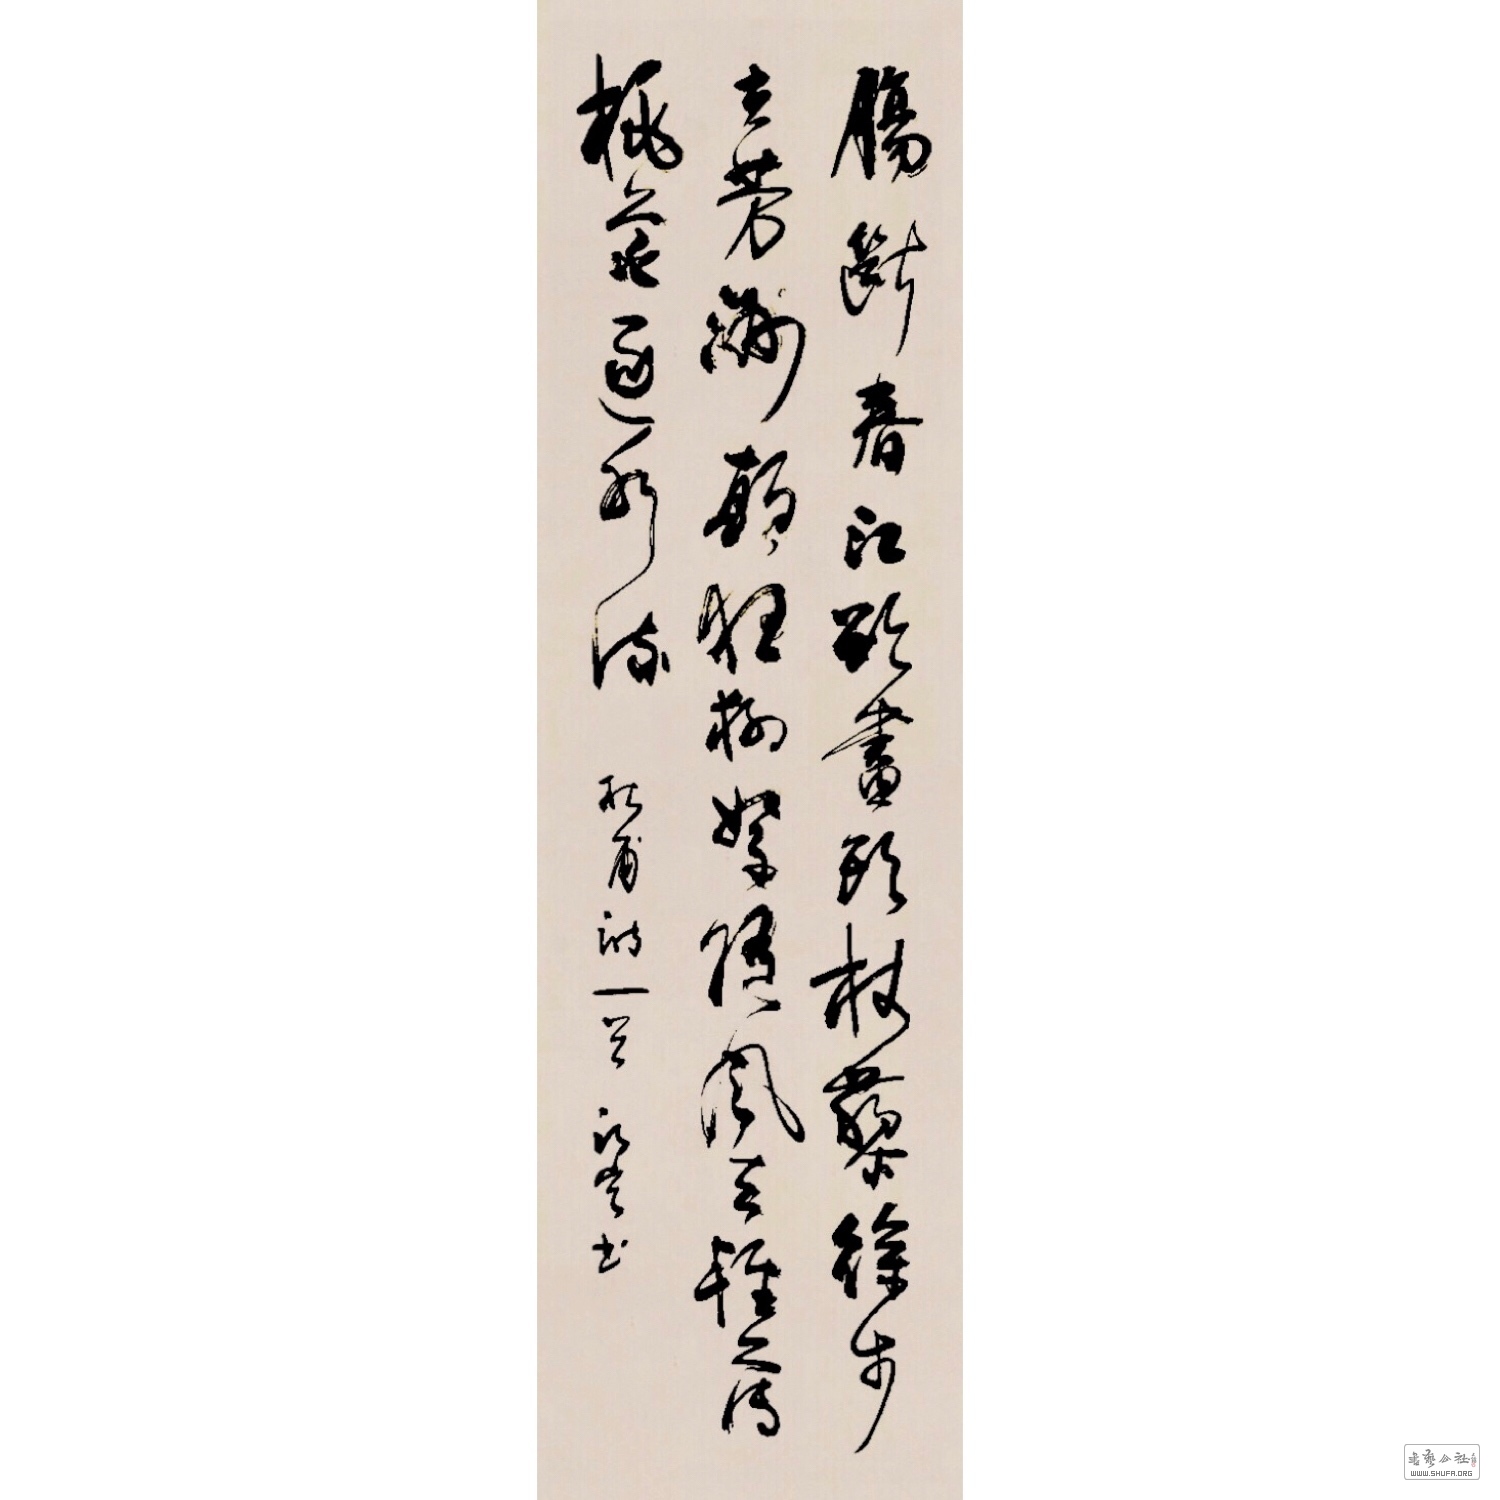 腸斷春江欲盡頭杖藜徐步
立芳洲顛狂柳絮隨風去輕薄
桃花逐水流 杜甫詩一首 書
书艺公社
WWW.SHUFA.ORG